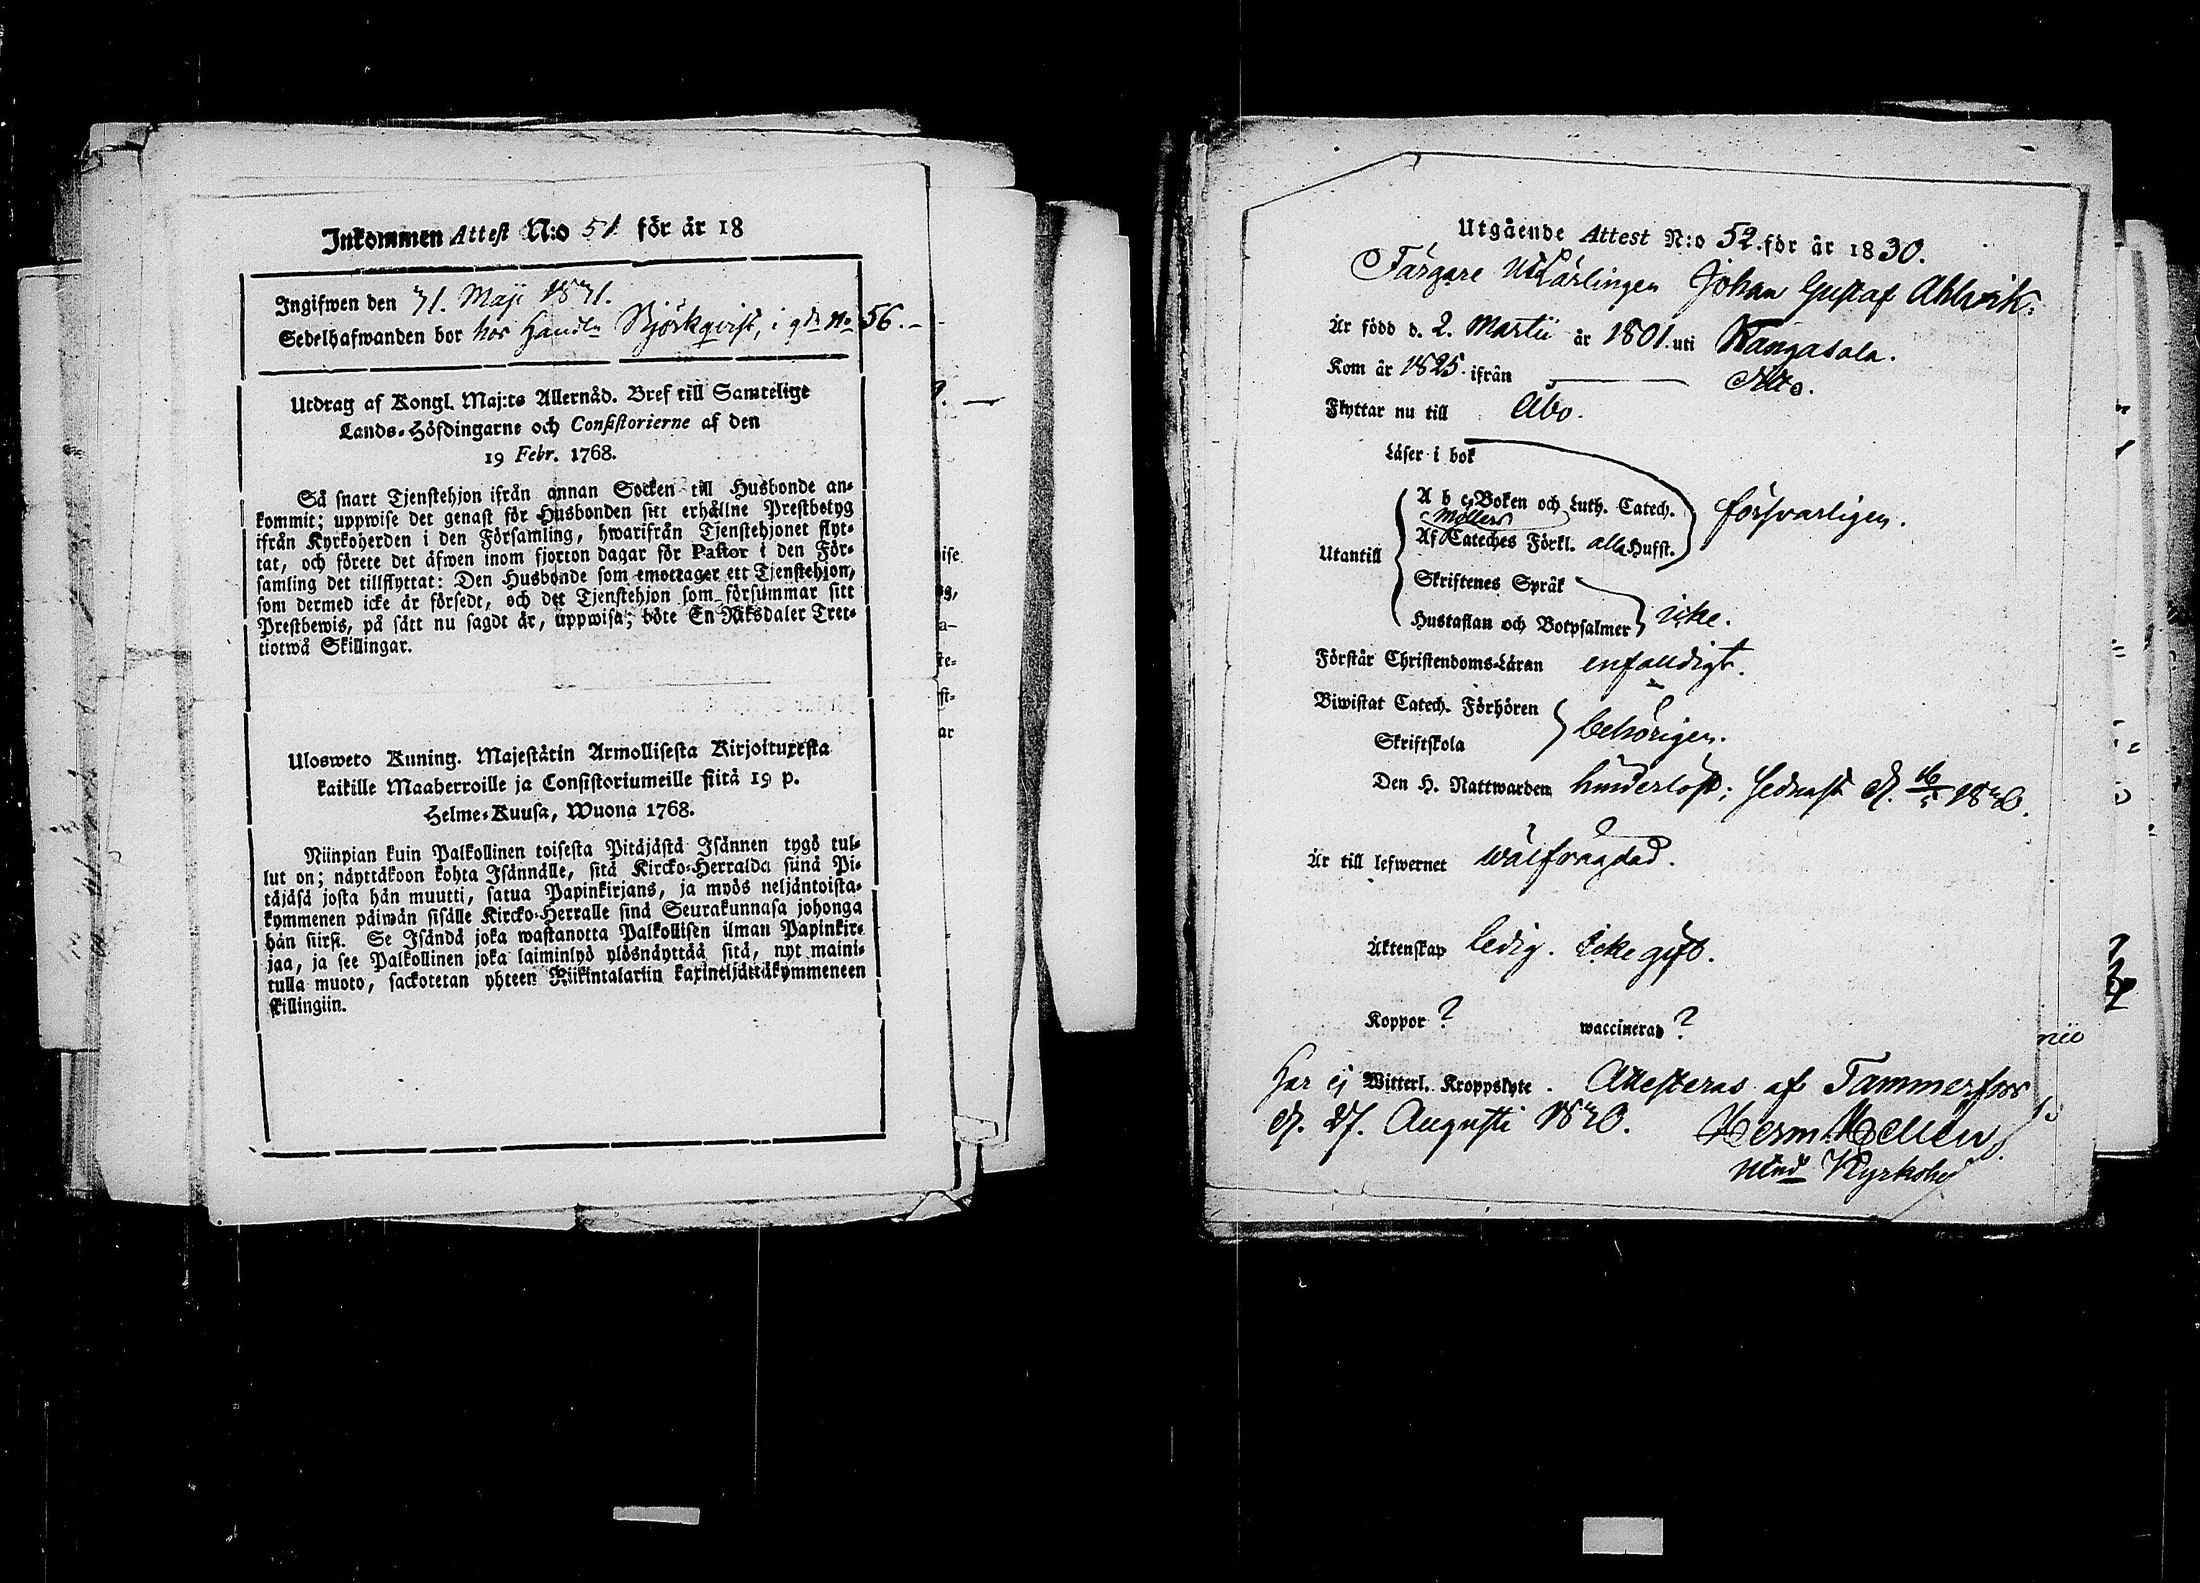 Inkommen Attest N:o 51 för år 18
Ingifwen den 31. Maji 1831.
Sedelhafwanden bor hos Handln Björkqvist, i gdn No 56.
Utdrag af Kongl. Maj:ts Allernåd. Bref till Samtelige
Lands-Höfdingarne och Consistorierne af den
19 Febr. 1768.
Så snart Tjenstehjon ifrån annan Socken till Husbonde an-
kommit; uppwise det genast för Husbonden sitt erhållne Prestbetyg
ifrån Kyrkoherden i den Församling, hwarifrån Tjenstehjonet flyt-
tat, och förete det äfwen inom fjorton dagar för Pastor i den För-
samling det tillflyttat: Den Husbonde som emottager ett Tjenstehjon,
som dermed icke är försedt, och det Tjenstehjon som försummar sitt
Prestbewis, på sätt nu sagdt är, uppwisa; böte En Riksdaler Tret-
tiotwå Skillingar.
Ulosweto Kuning. Majestätin Armollisesta Kirjoituxesta
kaikille Maaherroille ja Consistoriumeille siitä 19 p.
Helme-Kuusa, Wuona 1768.
Niinpian kuin Palkollinen toisesta Pitäjästä Isännen tygö tul-
lut on; näyttäkoon kohta Isännälle, sitä Kircko-Herralda siinä Pi-
täjäsä josta hän muutti, satua Papinkirjans, ja myös neljäntoista-
kymmenen päiwän sisälle Kircko-Herralle siinä Seurakunnasa johonga
hän siirst. Se Isändä joka wastanotta Palkollisen ilman Papinkir-
jaa, ja see Palkollinen joka laiminlyö ylösnäyttää sitä, nyt maini-
tulla muoto, sackotetan yhteen Riikintalariin kaxineljättäkymmeneen
skillingiin.
Utgående Attest N:o 52. för år 1830.
Färgare Utlärlingen Johan Gustaf Ahlwik.
Är född d. 2. Martii år 1801. uti Kangasala.
Kom år 1825. ifrån — Åbo.
Flyttar nu till Åbo.
Läser i bok
A b c-Boken och Luth. Catech. försvarligen.
Möllers
Utantill Af Cateches Förkl. alla Hufst.
Skriftenes Språk
Hustaflan och Botpsalmer icke.
Förstår Christendoms-Läran enfaldigt.
Biwistat Catech. Förhören
Skriftskola behörigen.
Den H. Nattwarden hinderlöst; sednast d. 16/5 1830.
Är till lefwernet wälfrägdad.
Äktenskap ledig. Icke gift.
Koppor ? waccinerad ?
Har ej Witterl. Kroppslyte. Attesteras af Tammerfors
d. 27. Augusti 1830. Herm. Hellén